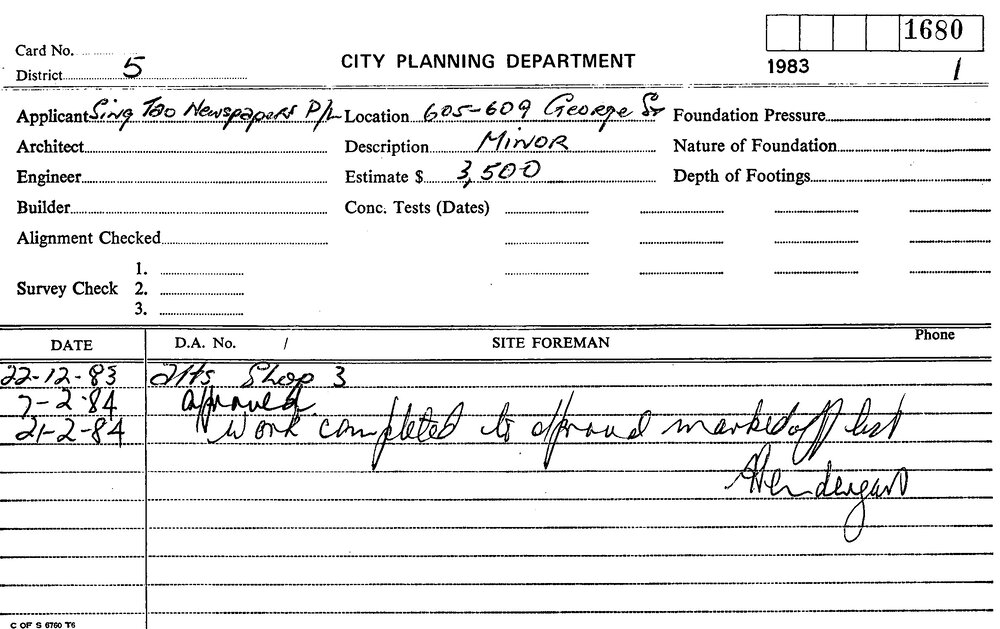 1680
Card No.
District 5
CITY PLANNING DEPARTMENT
1983 1
Applicant Sing Tao Newspapers P/L Location 605-609 George St Foundation Pressure
Architect Description MINOR Nature of Foundation
Engineer Estimate $ 3,500 Depth of Footings
Builder Conc. Tests (Dates)
Alignment Checked
1.
Survey Check 2.
3.
DATE D.A. No. / SITE FOREMAN Phone
22-12-83 alts Shop 3
7-2-84 approved
21-2-84 Work completed to marked off list
C OF S 6760 T6